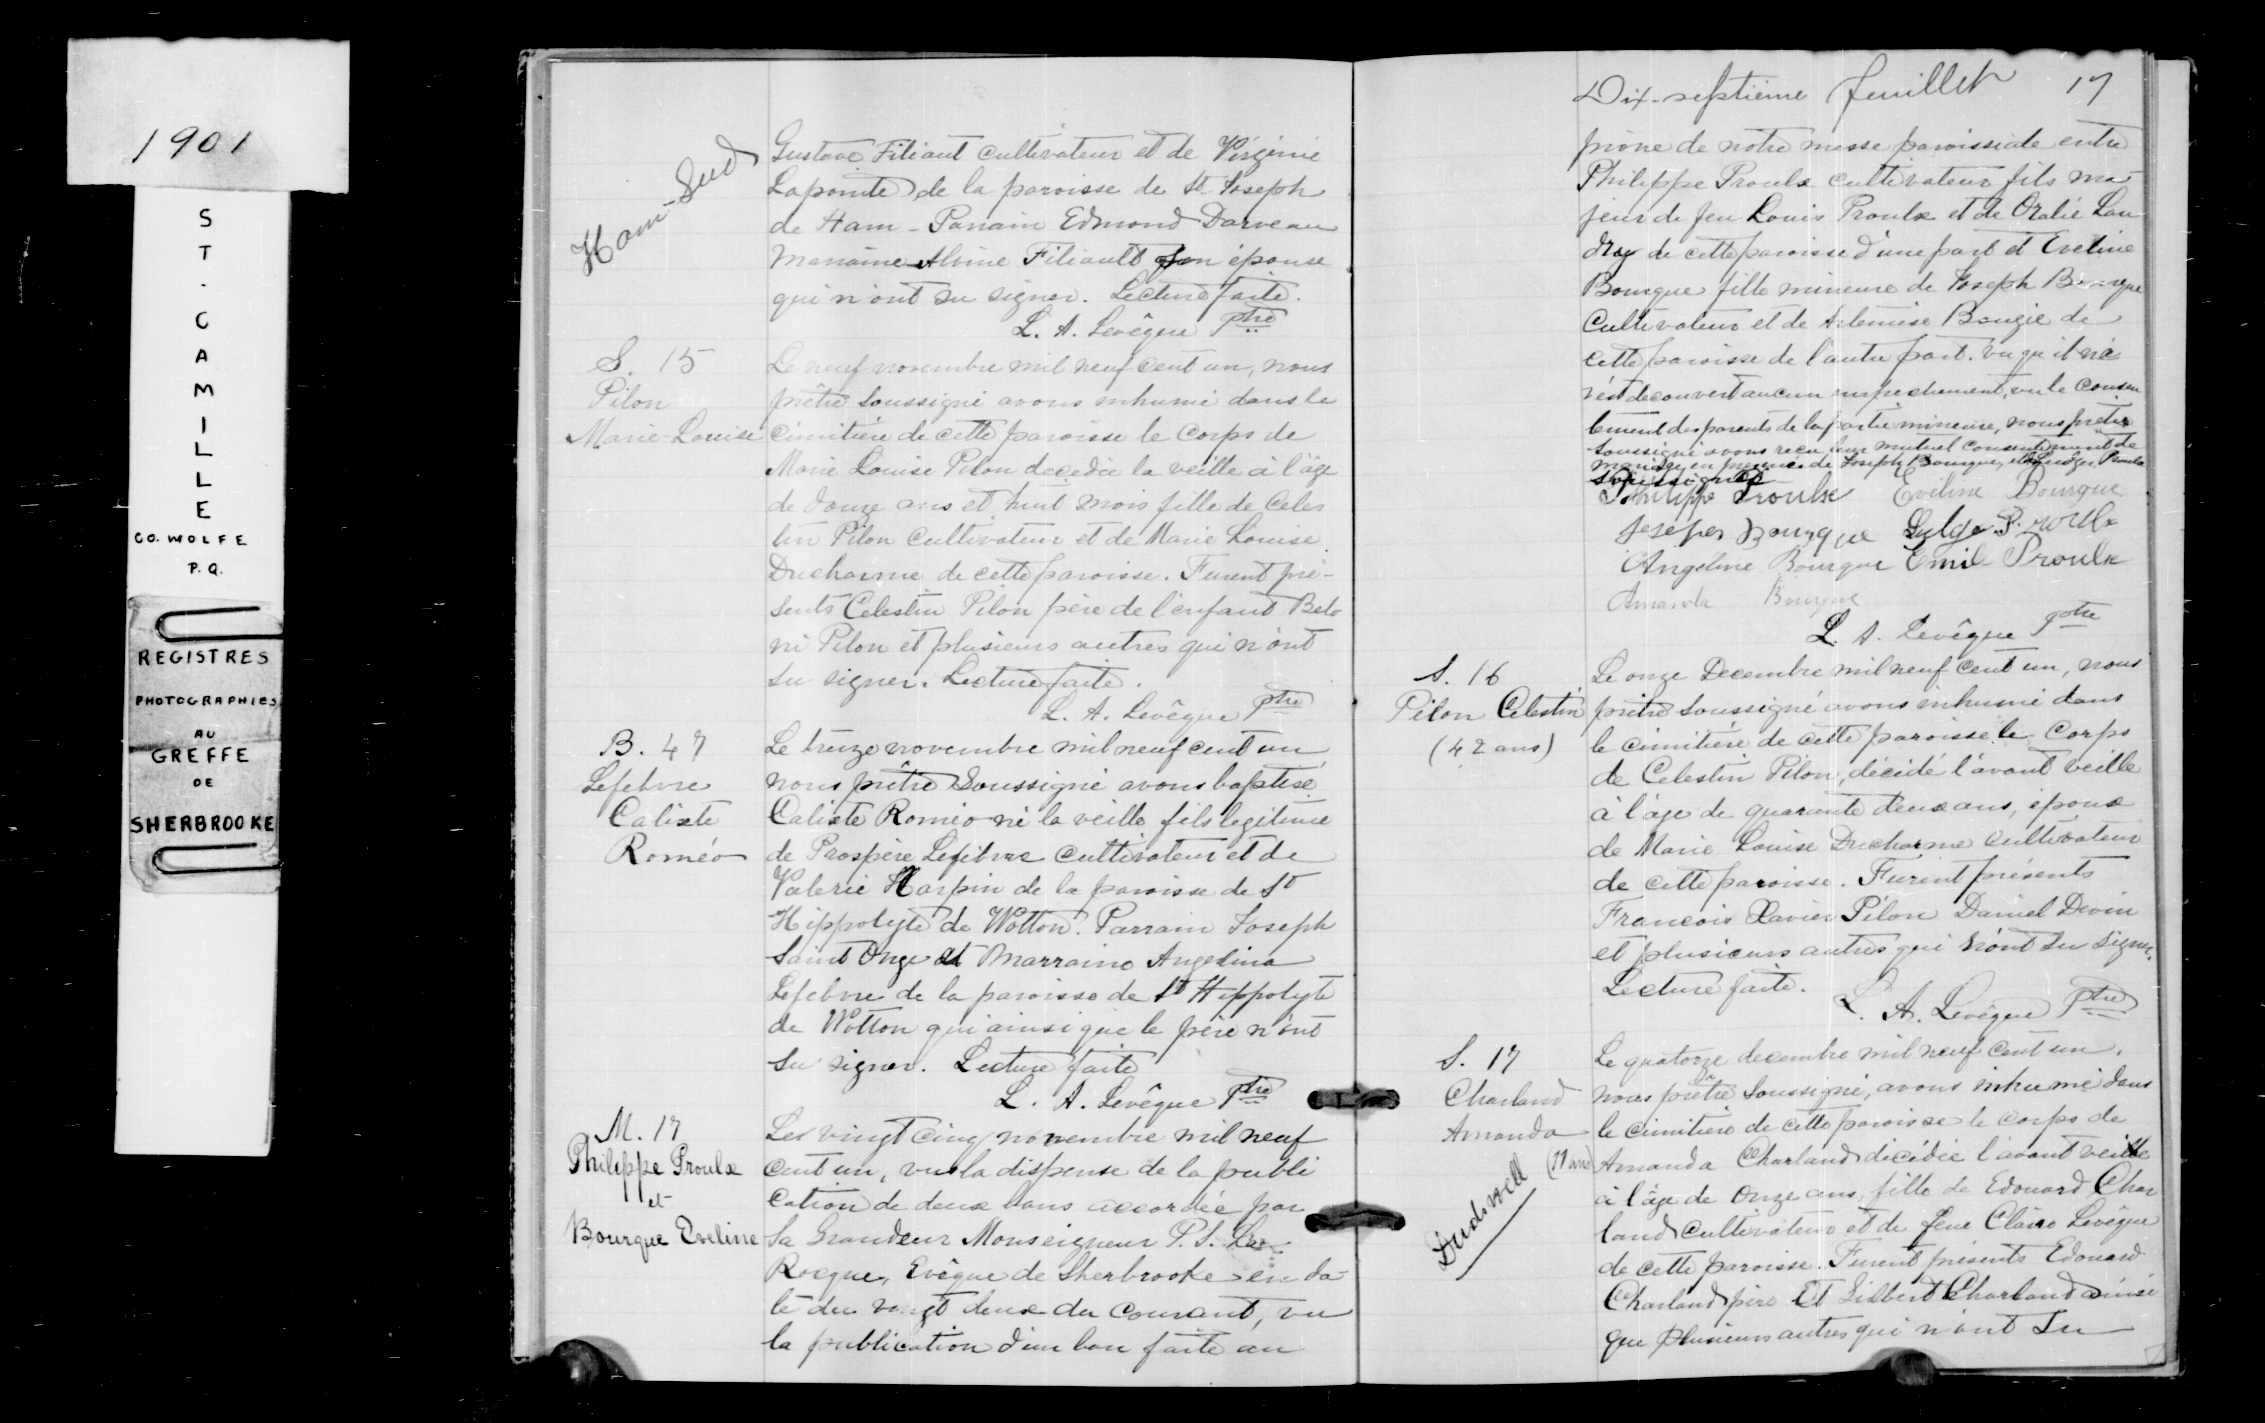 1901
ST. CAMILLE
CO. WOLFE
P.Q.
REGISTRES
PHOTOGRAPHIES
AU
GREFFE
DE
SHERBROOKE
Ham-Sud
Gustave Filiaut cultivateur et de Virginie
Lapointe de la paroisse de St Joseph
de Ham - Parrain Edmond Darveau
Marraine Alvine Filiault son épouse
qui n'ont su signer. Lecture faite.
L. A. Levêque Ptre
S. 15
Pilon
Marie-Louise
Le neuf novembre mil neuf cent un, nous
prêtre soussigné avons inhumé dans le
cimitière de cette paroisse le corps de
Marie Louise Pilon décédée la veille à l'âge
de douze ans et huit mois fille de Celes
tin Pilon cultivateur et de Marie Louise
Ducharme de cette paroisse. Furent pré-
sents Celestin Pilon père de l'enfant Belo
ni Pilon et plusieurs autres qui n'ont
su signer. Lecture faite.
L. A. Levêque Ptre
B. 47
Lefebvre
Calixte
Roméo
Le treize novembre mil neuf cent un
nous prêtre soussigné avons baptisé
Calixte Roméo né la veille fils legitime
de Prospère Lefebvre cultivateur et de
Valerie Harpin de la paroisse de St
Hippolyte de Wotton. Parrain Joseph
Saint Onge et Marraine Angelina
Lefebvre de la paroisse de St Hippolyte
de Wotton qui ainsi que le père n'ont
su signer. Lecture faite
L. A. Levêque Ptre
M. 17
Philippe Proulx
et
Bourque Eveline
Le vingt cinq novembre mil neuf
cent un, vu la dispense de la publi
cation de deux bans accordée par
Sa Grandeur Monseigneur P. S. La
Rocque, Evêque de Sherbrooke en da-
te du vingt deux du courant, vu
la publication d'un ban faite au
Dix-septième feuillet 17
prône de notre messe paroissiale entre
Philippe Proulx cultivateur fils ma-
jeur de feu Louis Proulx et de Oralie Lan
dry de cette paroisse d'une part et Eveline
Bourque fille mineure de Joseph Bourque
cultivateur et de Artemise Bougie de
cette paroisse de l'autre part. vu qu'il ne
s'est decouvert aucun empechement, vu le consen
tement des parents de la partie mineure, nous prêtre
soussigné avons reçu leur mutuel consentement de
mariage en presence de Joseph Bourque, et Proulx
soussignés
Philippe Proulx Eveline Bourque
Joseph Bourque Proulx
Angéline Bourque Emil Proulx
Amanda Bourque
L. A. Levêque Ptre
S. 16
Pilon Celestin
(42 ans)
Le onze Decembre mil neuf cent un, nous
prêtre soussigné avons inhumé dans
le cimitière de cette paroisse le corps
de Celestin Pilon, décédé l'avant veille
à l'âge de quarante deux ans, époux
de Marie Louise Ducharme cultivateur
de cette paroisse. Furent présents
Francois Xavier Pilon Daniel Divin
et plusieurs autres qui n'ont su signer.
Lecture faite.
L. A. Levêque Ptre
S. 17
Charland
Amanda
(11 ans)
Dudswell
Le quatorze decembre mil neuf cent un,
nous prêtre soussigné, avons inhumé dans
le cimitière de cette paroisse le corps de
Amanda Charland décédée l'avant veille
à l'âge de onze ans, fille de Edouard Char
land cultivateur et de feue Claire Levêque
de cette paroisse. Furent présents Edouard
Charland père Et Gilbert Charland ainsi
que plusieurs autres qui n'ont su